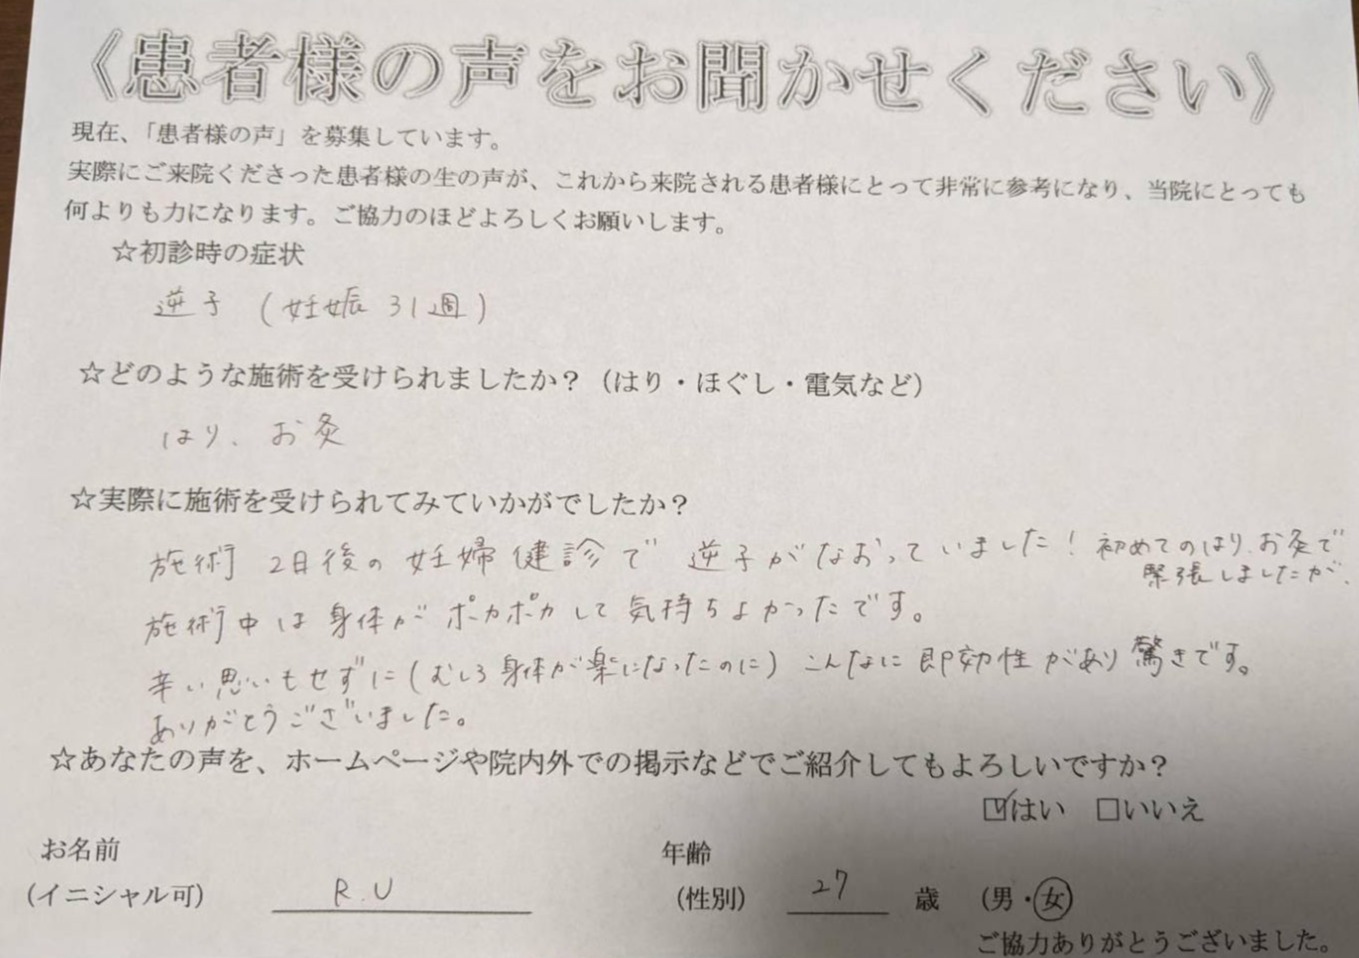 《患者様の声をお聞かせください》
現在、「患者様の声」を募集しています。
実際にご来院くださった患者様の生の声が、これから来院される患者様にとって非常に参考になり、当院にとっても
何よりも力になります。ご協力のほどよろしくお願いします。
☆初診時の症状
逆子 (妊娠 31週)
☆どのような施術を受けられましたか？（はり・ほぐし・電気など）
はり、お灸
☆実際に施術を受けられてみていかがでしたか？
施術 2日後の妊婦健診で 逆子がなおっていました! 初めてのはり、お灸で
緊張しましたが、
施術中は身体がポカポカして気持ちよかったです。
辛い思いもせずに(むしろ身体が楽になったのに) こんなに即効性があり驚きです。
ありがとうございました。
☆あなたの声を、ホームページや院内外での掲示などでご紹介してもよろしいですか？
☑はい □いいえ
お名前 年齢
(イニシャル可) R.U (性別) 27 歳 (男・女)
ご協力ありがとうございました。